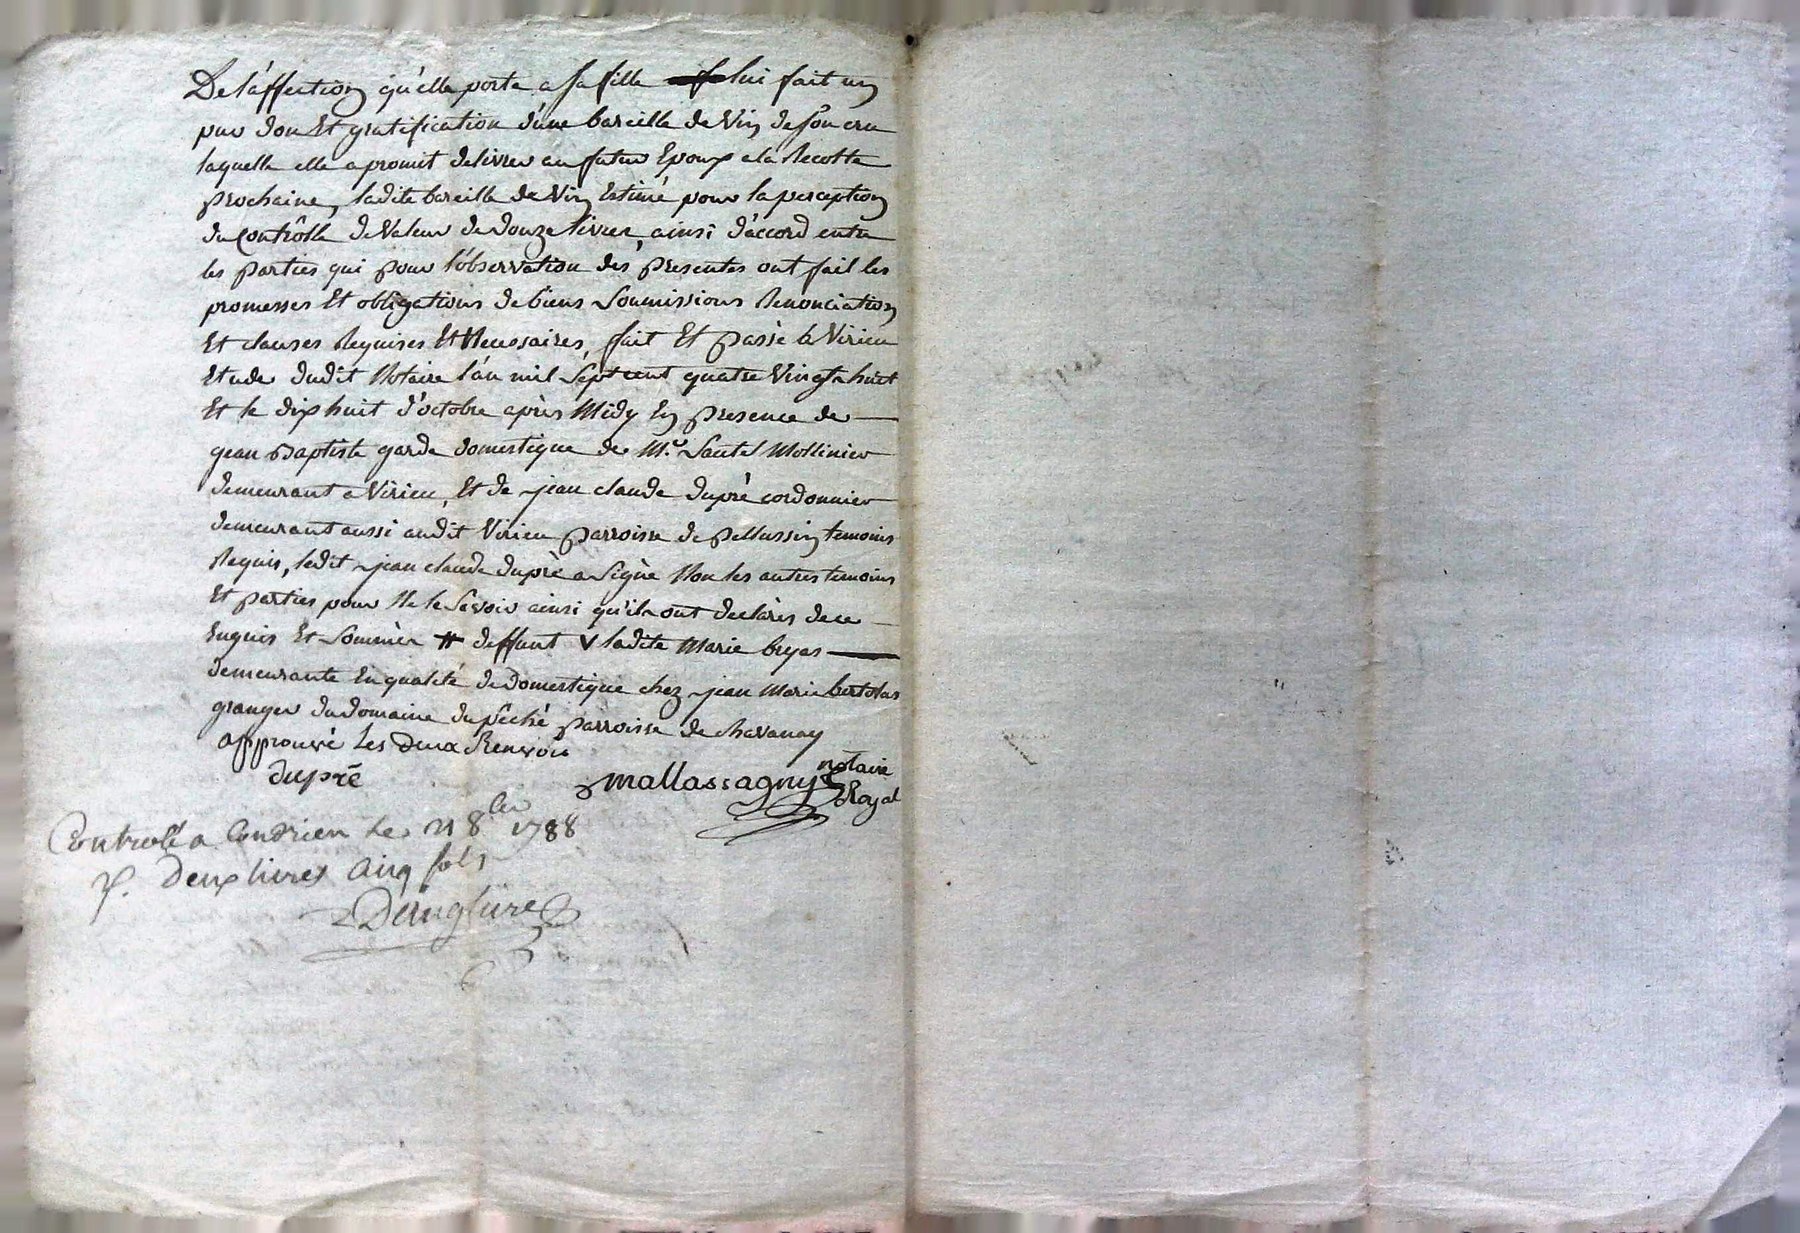 De l'áffection qu'elle porte a sa fille lui fait un
pur don Et gratification d'une bareille de Vin de son cru
laquelle elle a promit delivrer au futur Epoux a la Recolte
prochaine, ladite bareille de Vin Estimé pour la perception
du Contrôlle de Valeur de douze livres, ainsi d'áccord entre
les parties qui pour l'óbservation des presentes ont fait les
promesses Et obligations de biens Soumissions Renonciation
Et clauses Requises Et Necessaires, fait Et passé a Virieu
Etude dudit Notaire l'án mil Sept cent quatre Vingt huit
Et le dix huit d'octobre après Midy En presence de
jean Baptiste garde domestique de Mr. Sautel Mollinier
demeurant a Virieu, Et de jean claude dupré cordonnier
demeurant aussi audit Virieu parroisse de pellussin temoins
Requis, ledit jean claude dupré a Signé Non les autres temoins
Et parties pour Ne le Savoir ainsi qu'ils ont declarés de ce
Enquis Et Sommés # deffunt V ladite Marie bryas
demeurante En qualité de Domestique chez jean Marie bertolas
granger du domaine du pêché parroisse de chavanay
approuvé Les deux Renvois
dupré
Mallassagny notaire
Royal
Controllé a Condrieu Le 21 8bre 1788
R. Deux livres Cinq sols
Danglure